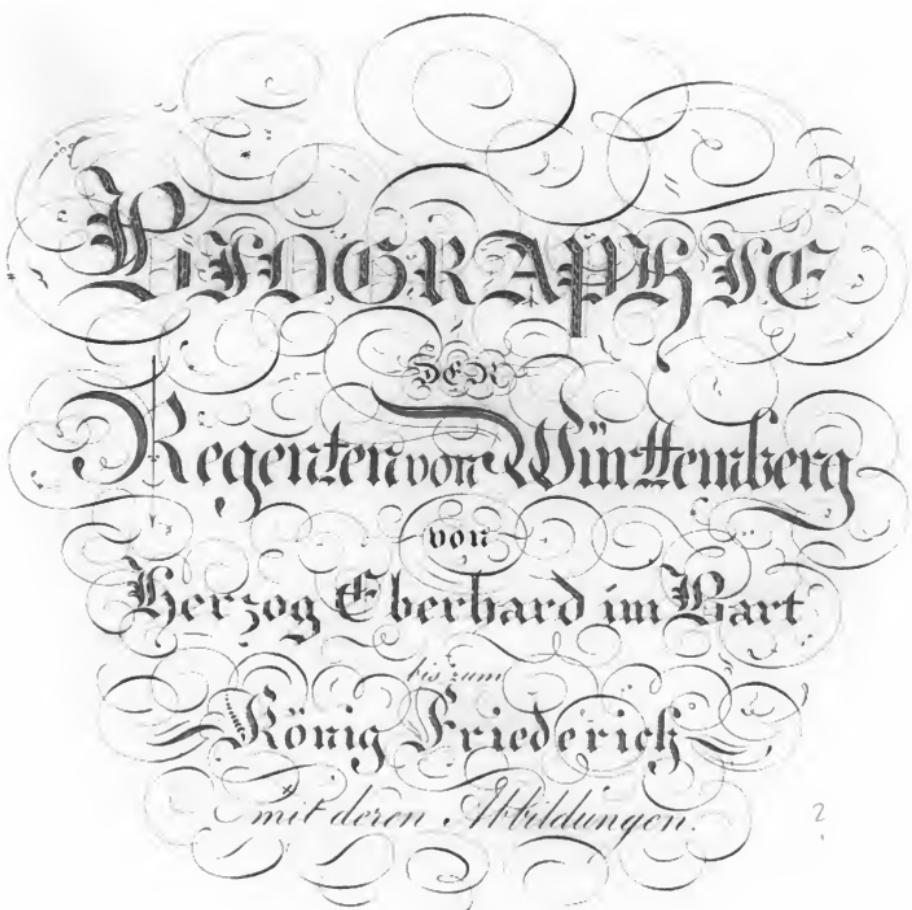 BIOGRAPHIE
DER
Regenten von Württemberg
von
Herzog Eberhard im Bart
bis zum
König Friederich
mit deren Abbildungen.
2